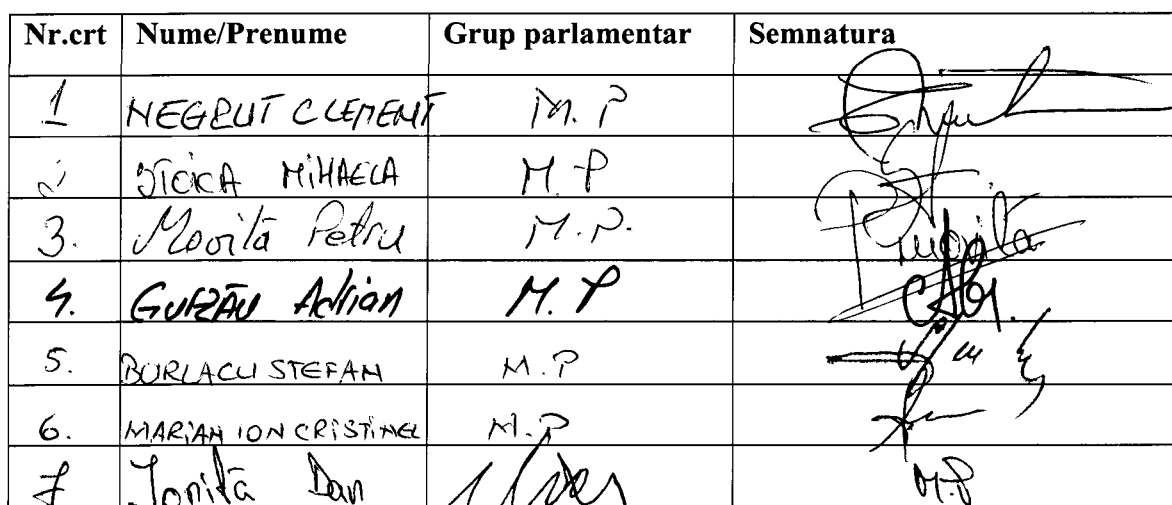 Nr.crt Nume/Prenume Grup parlamentar Semnatura
1 NEGRUT CLEMENT M.P
2 STOICA MIHAELA M.P
3. Movilă Petru M.P.
4. GURZĂU Adrian M.P
5. BURLACU STEFAN M.P
6. MARIAN ION CRISTINEL M.P
7 Ioniță Dan M.P